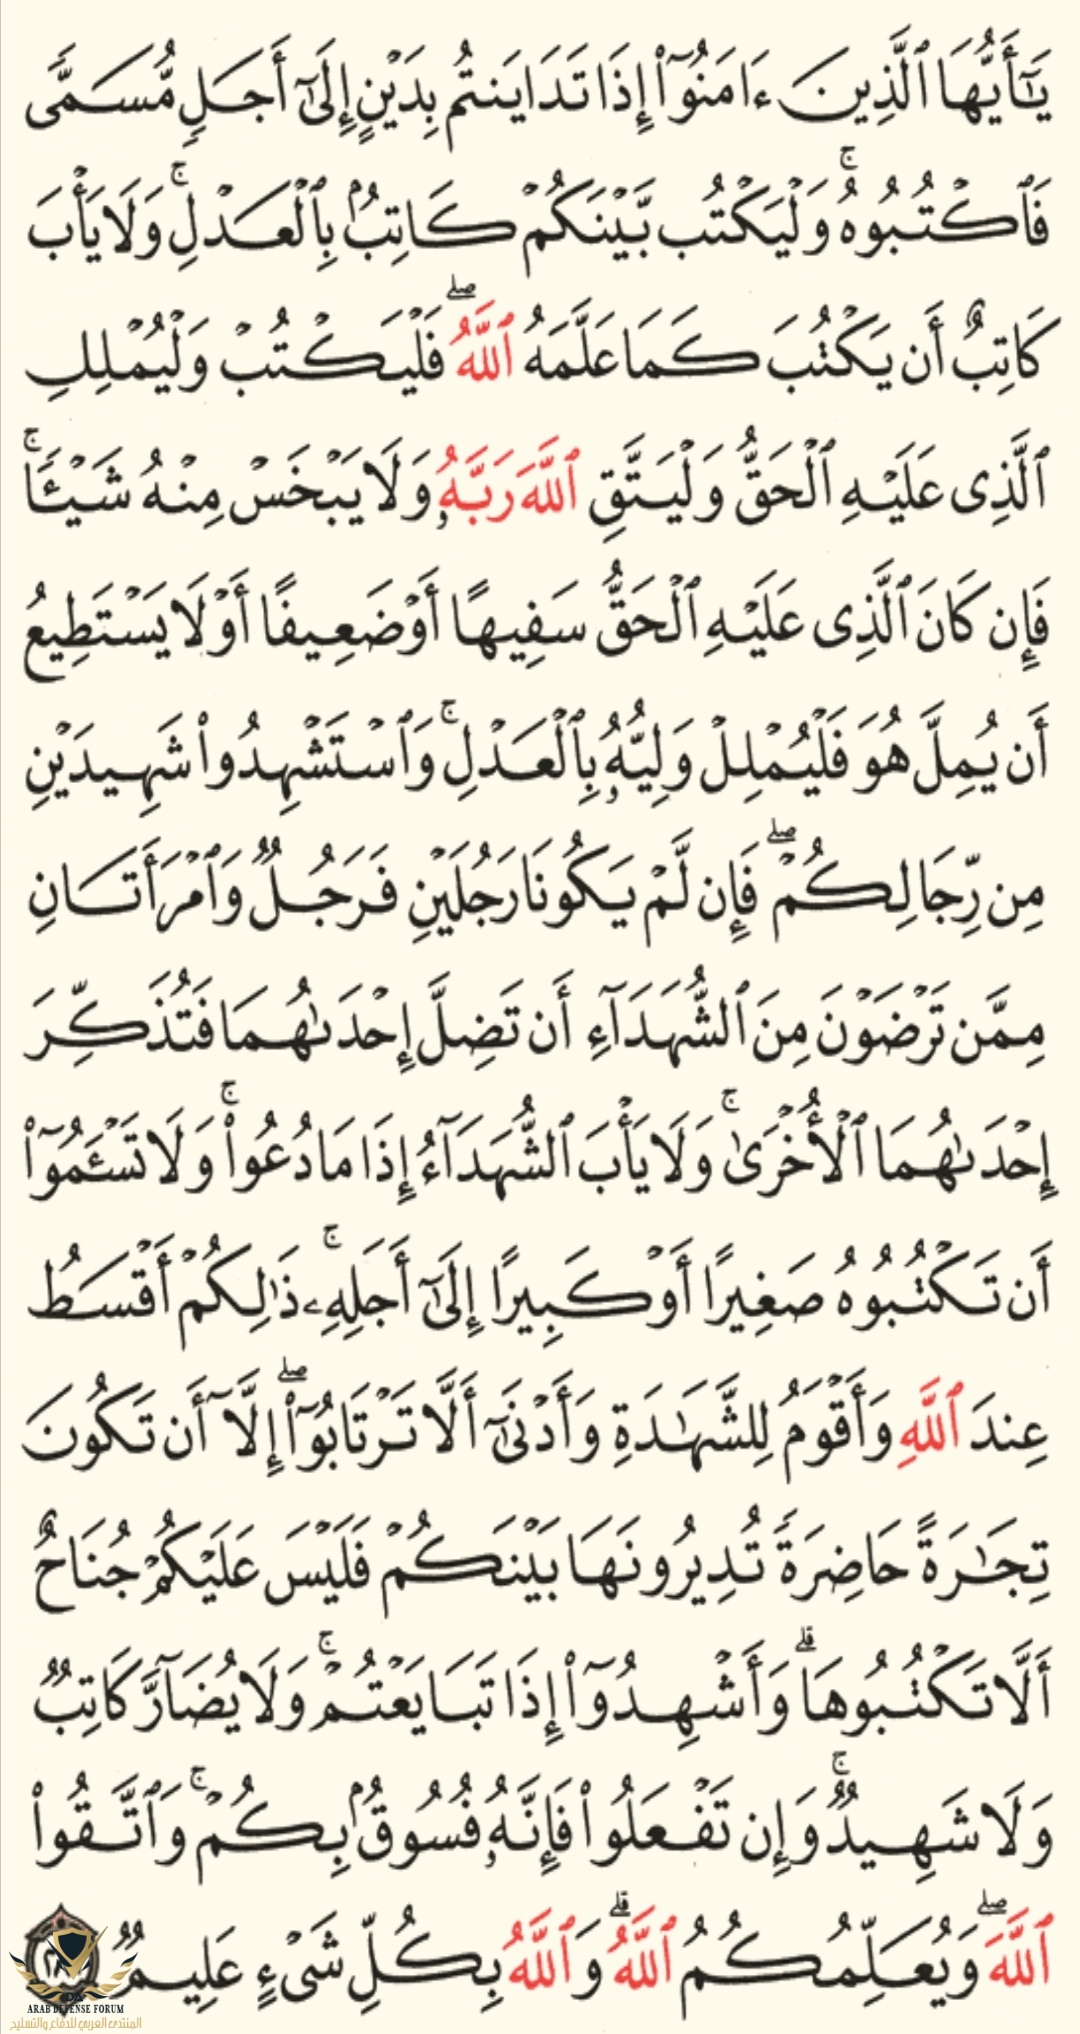 يَٰٓأَيُّهَا ٱلَّذِينَ ءَامَنُوٓا۟ إِذَا تَدَايَنتُم بِدَيْنٍ إِلَىٰٓ أَجَلٍ مُّسَمًّى
فَٱكْتُبُوهُ ۚ وَلْيَكْتُب بَّيْنَكُمْ كَاتِبٌۢ بِٱلْعَدْلِ ۚ وَلَا يَأْبَ
كَاتِبٌ أَن يَكْتُبَ كَمَا عَلَّمَهُ ٱللَّهُ ۖ فَلْيَكْتُبْ وَلْيُمْلِلِ
ٱلَّذِى عَلَيْهِ ٱلْحَقُّ وَلْيَتَّقِ ٱللَّهَ رَبَّهُۥ وَلَا يَبْخَسْ مِنْهُ شَيْـًٔا ۚ
فَإِن كَانَ ٱلَّذِى عَلَيْهِ ٱلْحَقُّ سَفِيهًا أَوْ ضَعِيفًا أَوْ لَا يَسْتَطِيعُ
أَن يُمِلَّ هُوَ فَلْيُمْلِلْ وَلِيُّهُۥ بِٱلْعَدْلِ ۚ وَٱسْتَشْهِدُوا۟ شَهِيدَيْنِ
مِن رِّجَالِكُمْ ۖ فَإِن لَّمْ يَكُونَا رَجُلَيْنِ فَرَجُلٌ وَٱمْرَأَتَانِ
مِمَّن تَرْضَوْنَ مِنَ ٱلشُّهَدَآءِ أَن تَضِلَّ إِحْدَىٰهُمَا فَتُذَكِّرَ
إِحْدَىٰهُمَا ٱلْأُخْرَىٰ ۚ وَلَا يَأْبَ ٱلشُّهَدَآءُ إِذَا مَا دُعُوا۟ ۚ وَلَا تَسْـَٔمُوٓا۟
أَن تَكْتُبُوهُ صَغِيرًا أَوْ كَبِيرًا إِلَىٰٓ أَجَلِهِۦ ۚ ذَٰلِكُمْ أَقْسَطُ
عِندَ ٱللَّهِ وَأَقْوَمُ لِلشَّهَٰدَةِ وَأَدْنَىٰٓ أَلَّا تَرْتَابُوٓا۟ ۖ إِلَّآ أَن تَكُونَ
تِجَٰرَةً حَاضِرَةً تُدِيرُونَهَا بَيْنَكُمْ فَلَيْسَ عَلَيْكُمْ جُنَاحٌ
أَلَّا تَكْتُبُوهَا ۗ وَأَشْهِدُوٓا۟ إِذَا تَبَايَعْتُمْ ۚ وَلَا يُضَآرَّ كَاتِبٌ
وَلَا شَهِيدٌ ۚ وَإِن تَفْعَلُوا۟ فَإِنَّهُۥ فُسُوقٌۢ بِكُمْ ۗ وَٱتَّقُوا۟
ٱللَّهَ ۖ وَيُعَلِّمُكُمُ ٱللَّهُ ۗ وَٱللَّهُ بِكُلِّ شَىْءٍ عَلِيمٌ
ARAB DEFENSE FORUM
المنتدى العربي للدفاع والتسليح